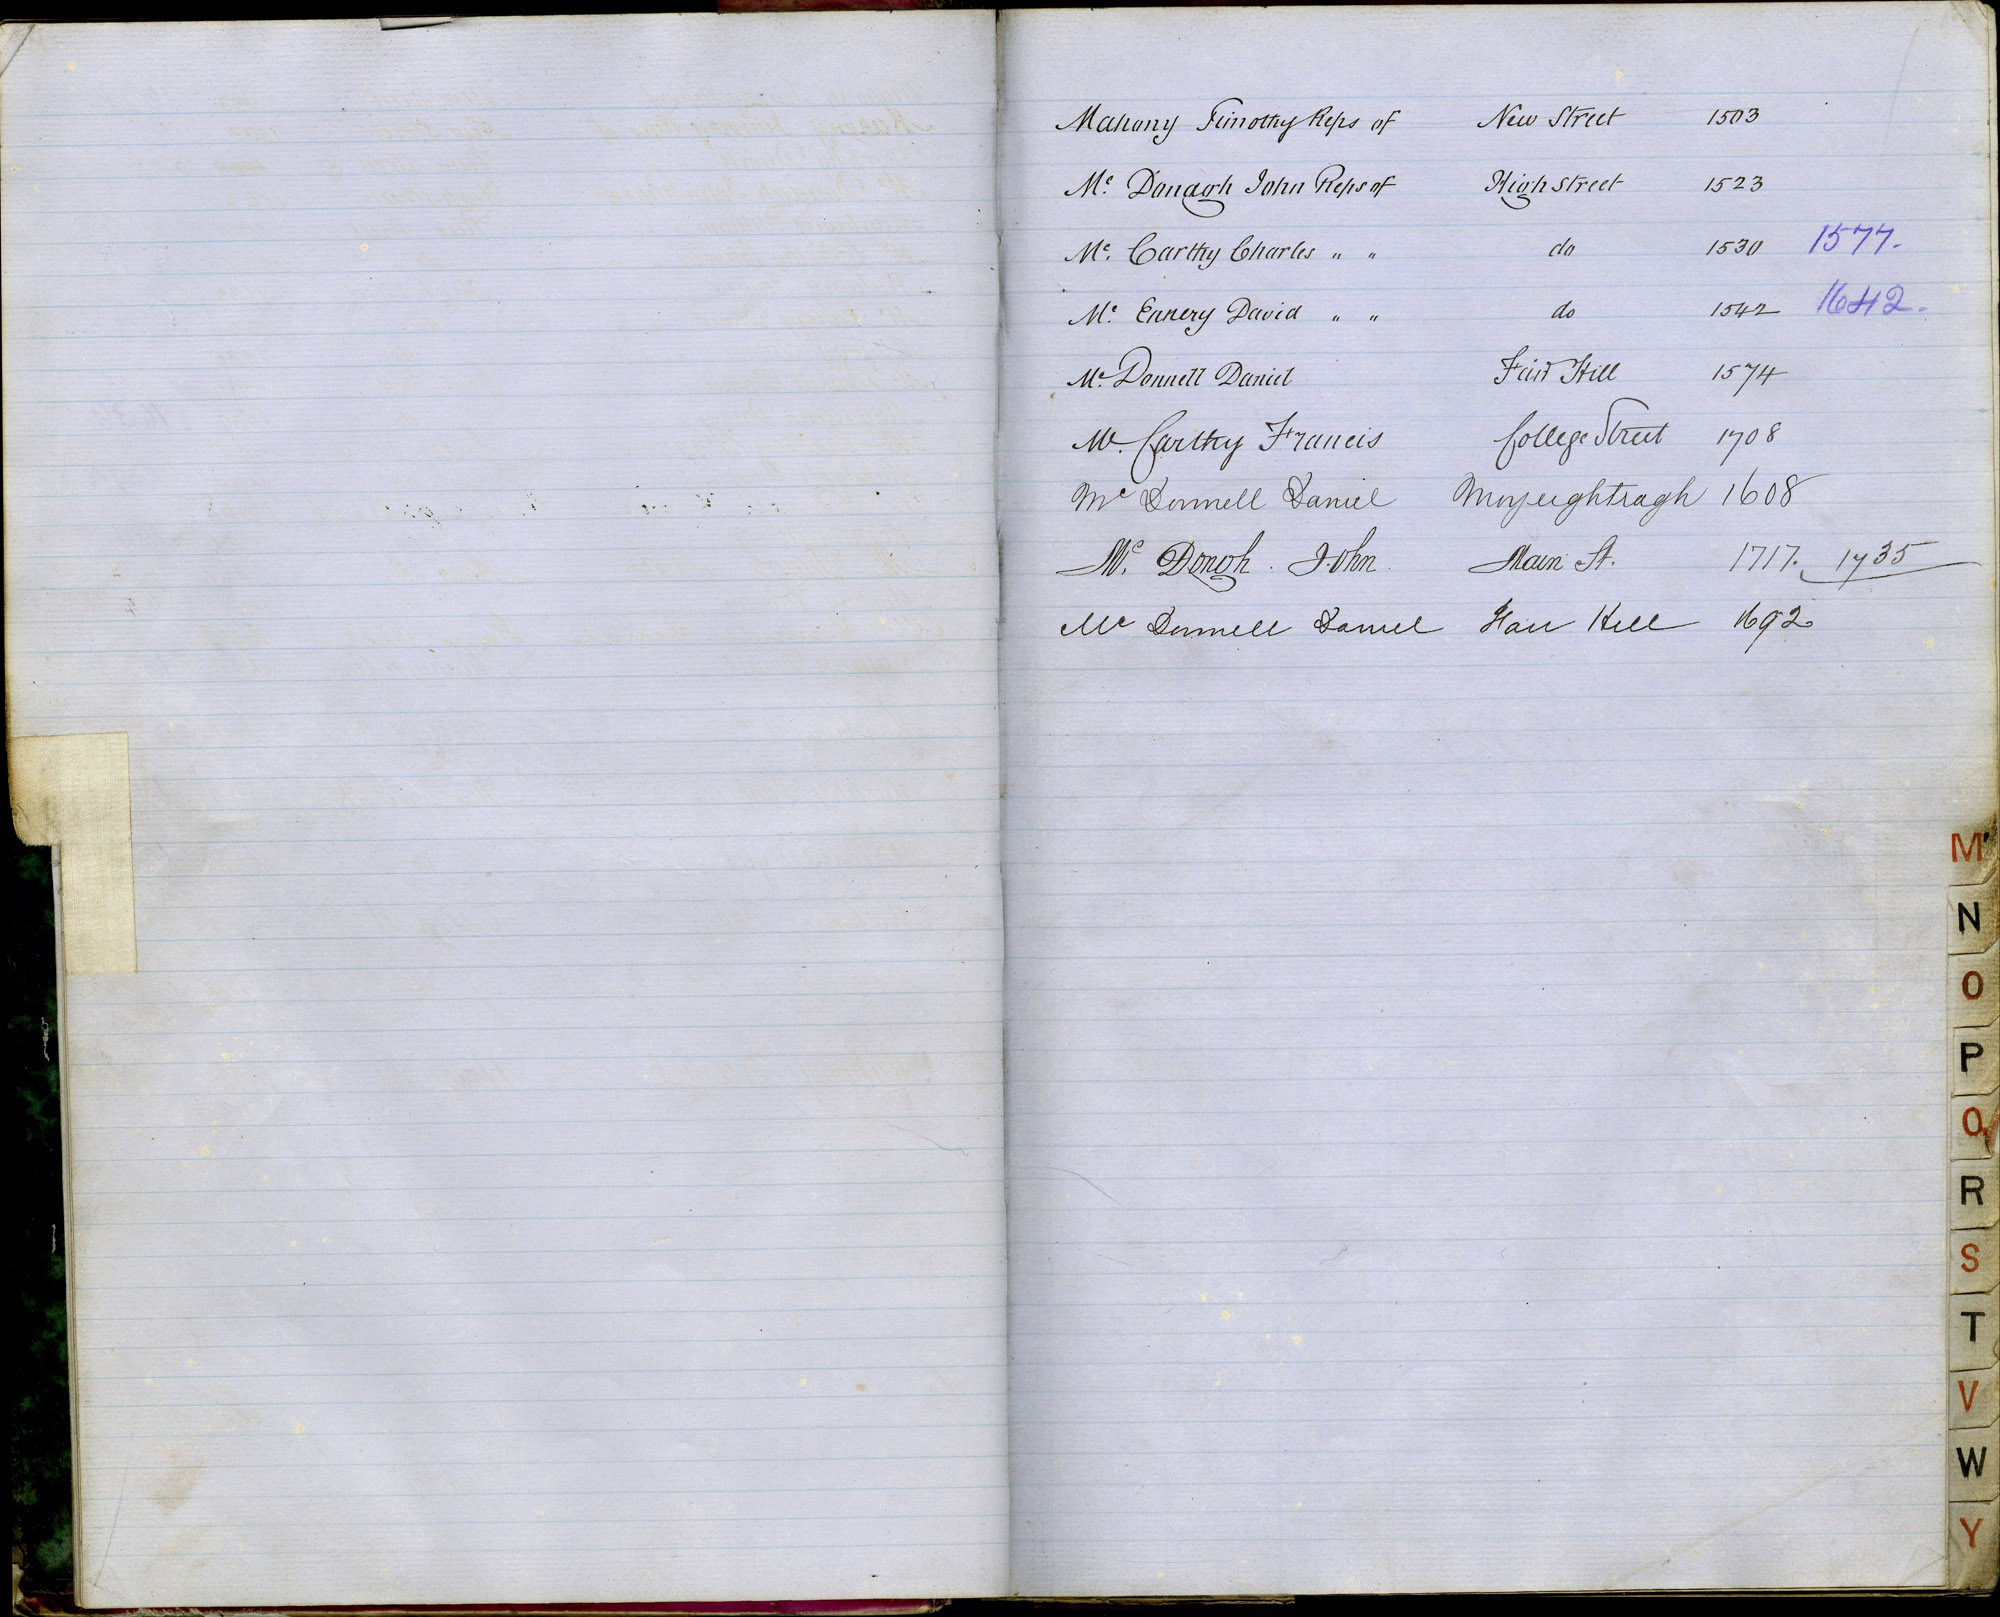 Mahony Timothy Reps of New Street 1503
Mc. Donagh John Reps of High Street 1523
Mc. Carthy Charles " " do 1530 1577.
Mc. Ennery David " " do 1542 1642.
Mc. Donnell Daniel Fair Hill 1574
Mc. Carthy Francis College Street 1708
Mc Donnell Daniel Moyeightragh 1608
Mc. Donoh. John. Main St. 1717. 1735
Mc Donnell Daniel Hair Hill 1692
Mc
N
O
P
Q
R
S
T
V
W
Y